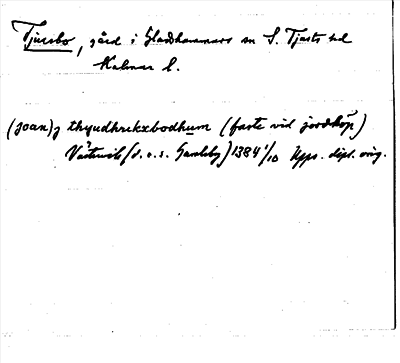 Tjusbo, gård i Gladhammars sn S. Tjusts hd
Kalmar l.
(joan) j thyudhrekxbodhum (faste vid jordköp)
Västervik (d.v.s. Gamleby) 1384 1/10 Upps. dipl. orig.